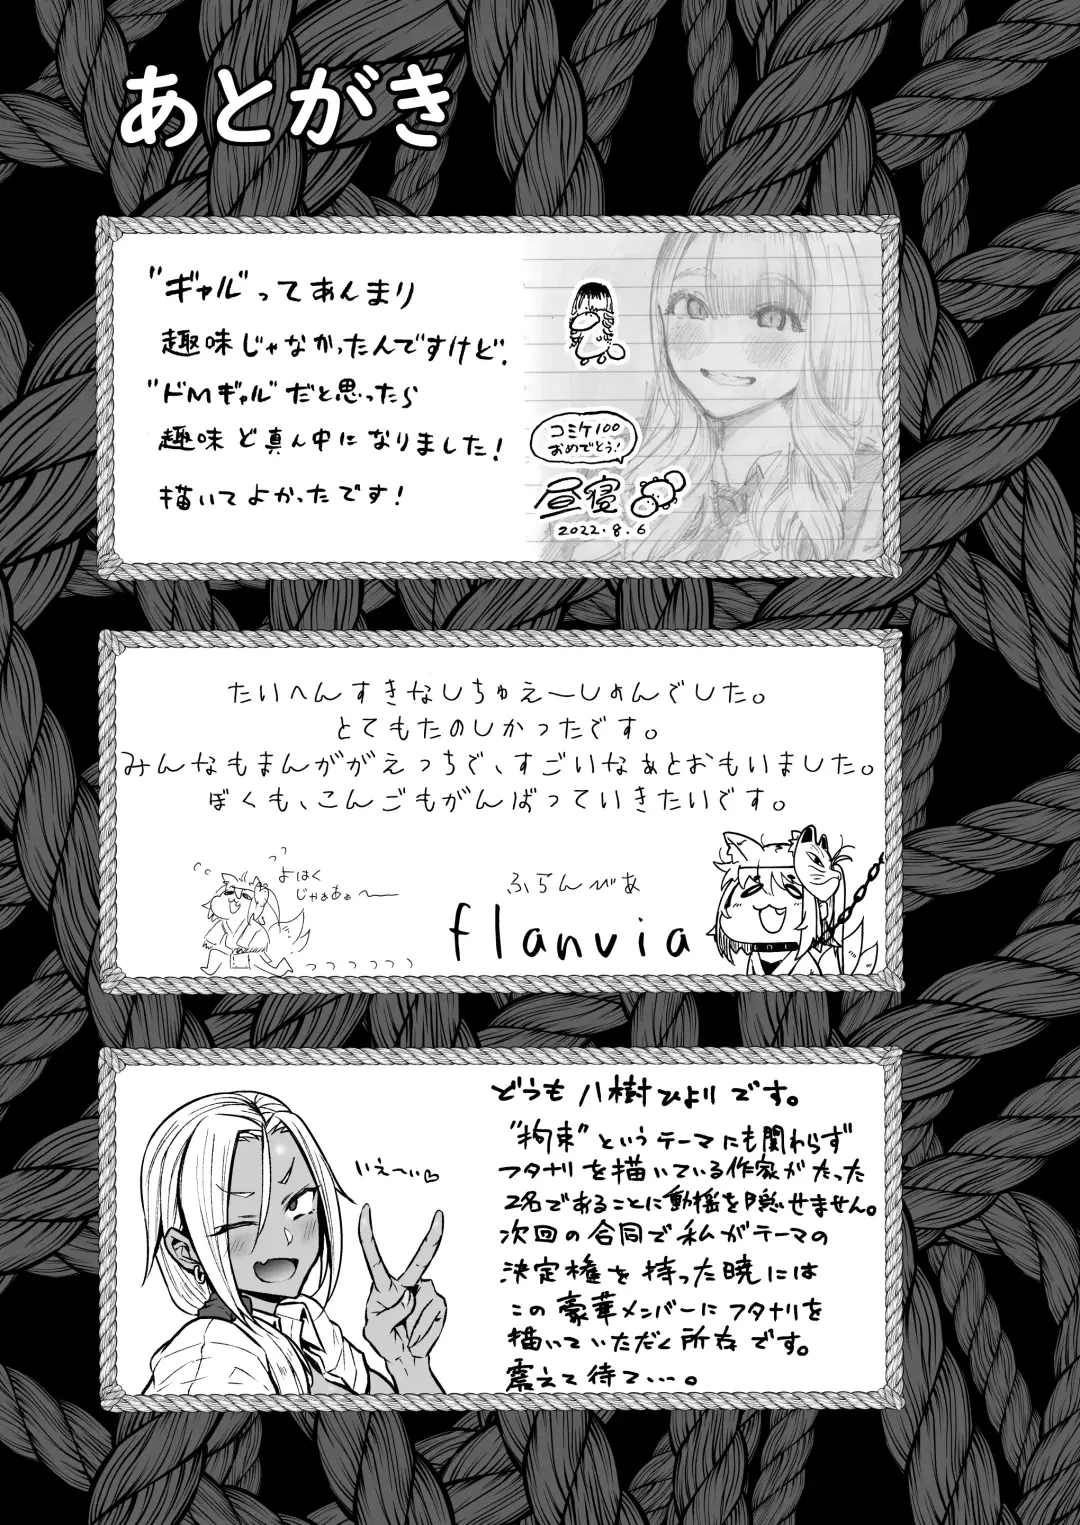 あとがき
"ギャル"ってあんまり
趣味じゃなかったんですけど、
"ドMギャル"だと思ったら
趣味ど真ん中になりました!
描いてよかったです!
コミケ100
おめでとう!
昼寝
2022.8.6
たいへんすきなしちゅえーしょんでした。
とてもたのしかったです。
みんなもまんががえっちで、すごいなぁとおもいました。
ぼくも、こんごもがんばっていきたいです。
よはく
じゃぁあぁ〜
ふらんびあ
flanvia
いえ〜い♡
どうも八樹ひよりです。
"拘束"というテーマにも関わらず
フタナリを描いている作家がたった
2名であることに動揺を隠せません。
次回の合同で私がテーマの
決定権を持った暁には
この豪華メンバーにフタナリを
描いていただく所存です。
震えて待て…。